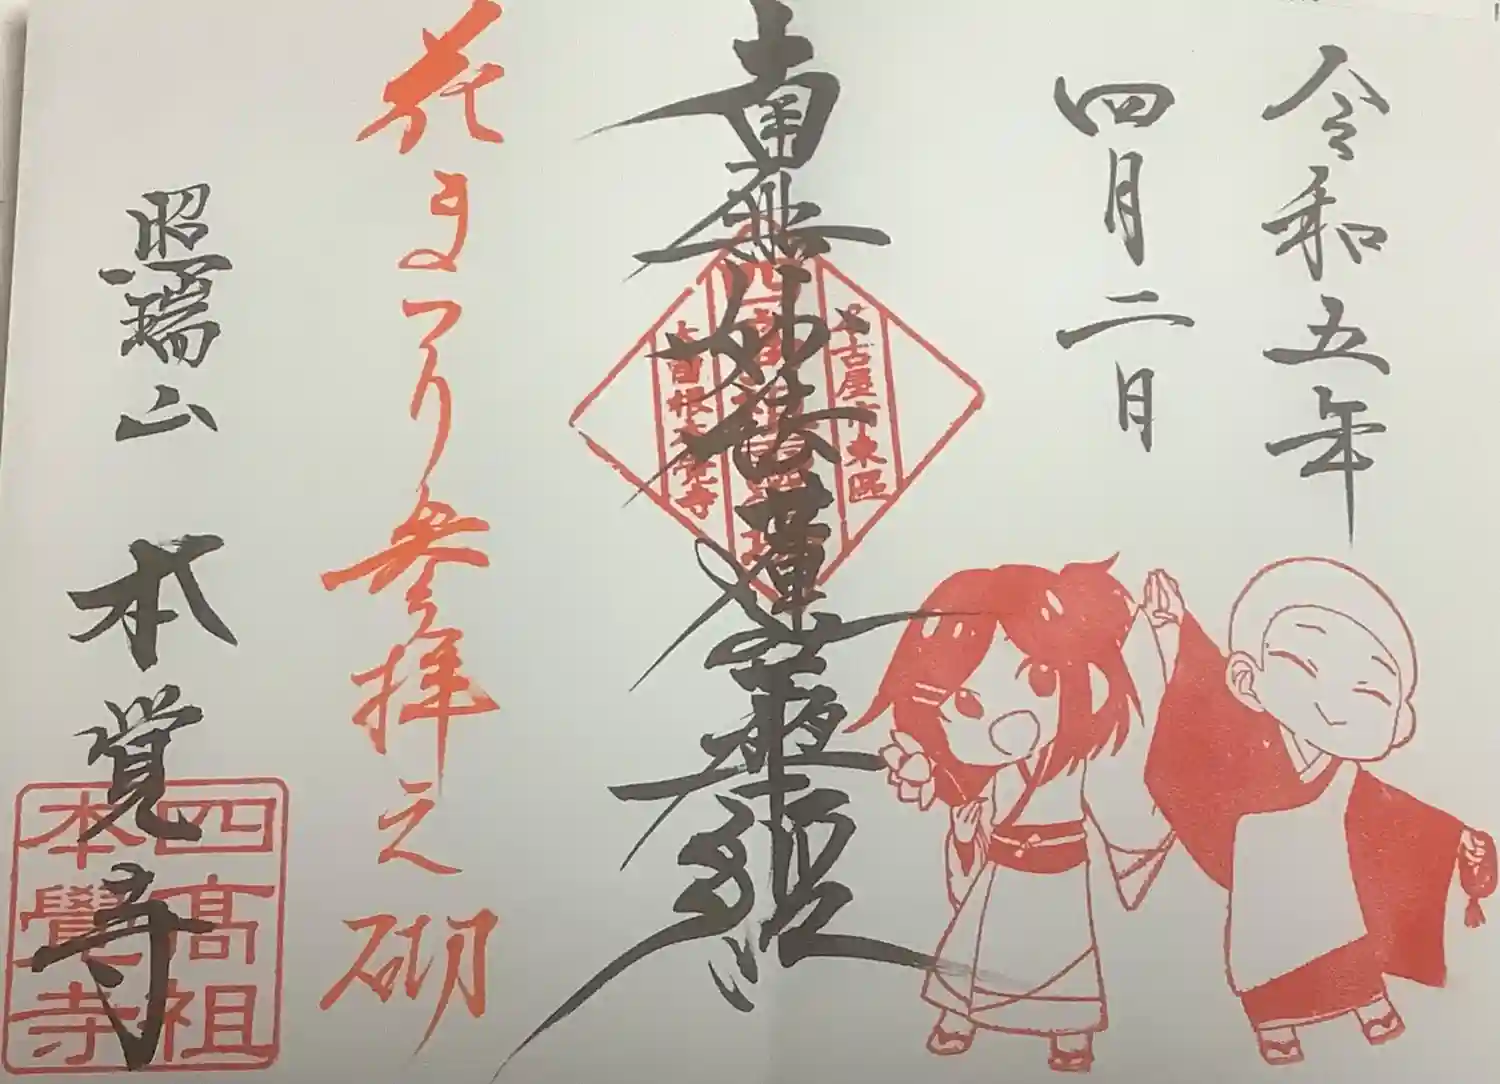 令和五年
四月二日
南無妙法蓮華経
名古屋市東区
大曽根本覚寺
花まつり参拝之砌
照瑞山
本覚寺
四高祖
本覺寺